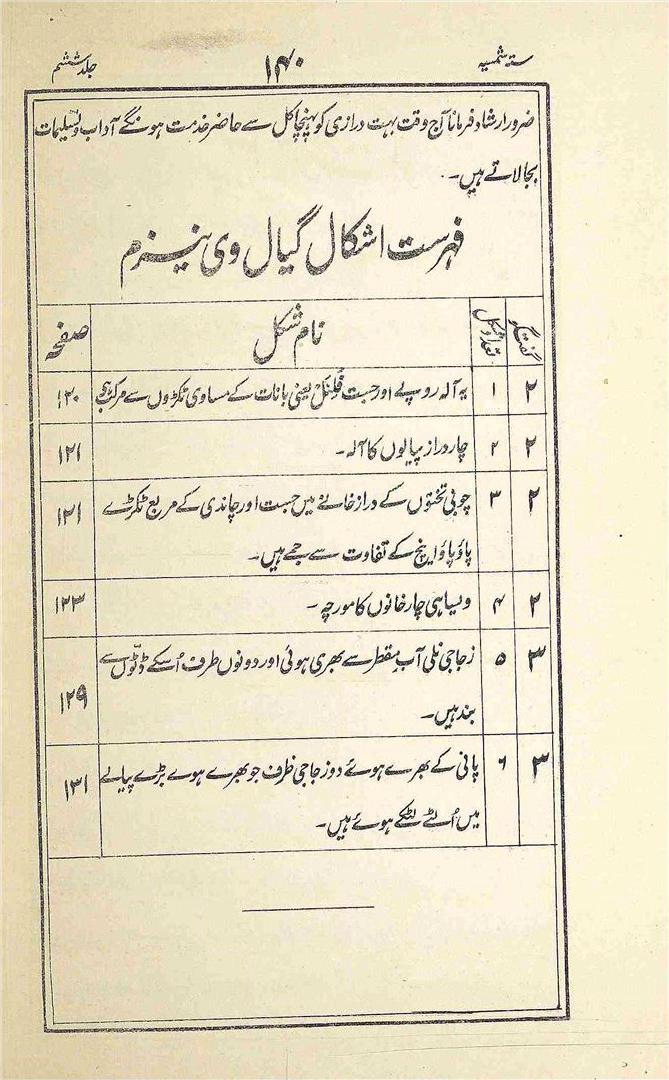 ستہ شمسیہ ۱۴۰ جلد ششم
ضرور ارشاد فرمانا آج وقت بہت درازی کو پہنچا کل سے حاضر خدمت ہونگے آداب و تسلیمات
بجا لاتے ہیں۔
فہرست اشکال گیال وی ہینزم
گفتگو تعداد شکل نام شکل صفحہ
۲ ۱ یہ آلہ روپے اور جست و فلنل یعنی بانات کے مساوی ٹکڑوں سے مرکب ہے ۱۲۰
۲ ۲ چار دراز پیالوں کا آلہ۔ ۱۲۱
۲ ۳ چوبی تختوں کے دراز خانے میں جست اور چاندی کے مربع ٹکڑے ۱۲۱
پاؤ پاؤ اینچ کے تفاوت سے جمے ہیں۔
۲ ۴ ویسا ہی چار خانوں کا مورچہ۔ ۱۲۳
۳ ۵ زجاجی نلی آب مقطر سے بھری ہوئی اور دونوں طرف اُسکے ڈٹّوں سے ۱۲۹
بند ہیں۔
۳ ۶ پانی کے بھرے ہوئے دو زجاجی ظرف جو بھرے ہوے بڑے پیالے ۱۳۱
میں اُلٹے لٹکے ہوئے ہیں۔